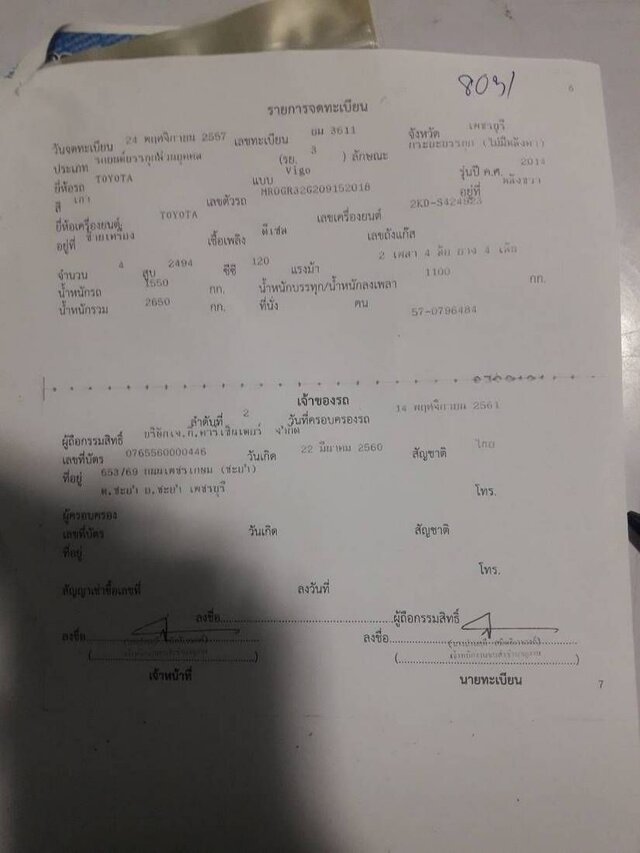 8031
6
รายการจดทะเบียน
วันจดทะเบียน 24 พฤศจิกายน 2557 เลขทะเบียน ยม 3611 จังหวัด เพชรบุรี
ประเภท รถยนต์บรรทุกส่วนบุคคล (รย. 3 ) ลักษณะ กระบะบรรทุก (ไม่มีหลังคา)
ยี่ห้อรถ TOYOTA แบบ Vigo รุ่นปี ค.ศ. 2014
สี เทา เลขตัวรถ MR0GR32G209152018 อยู่ที่ หลังขวา
ยี่ห้อเครื่องยนต์ TOYOTA เลขเครื่องยนต์ 2KD-S424823
อยู่ที่ ซ้ายเครื่อง เชื้อเพลิง ดีเซล เลขถังแก๊ส
จำนวน 4 สูบ 2494 ซีซี 120 แรงม้า 2 เพลา 4 ล้อ ยาง 4 เส้น
น้ำหนักรถ 1550 กก. น้ำหนักบรรทุก/น้ำหนักลงเพลา 1100 กก.
น้ำหนักรวม 2650 กก. ที่นั่ง คน 57-0796484
เจ้าของรถ
ลำดับที่ 2 วันที่ครอบครองรถ 14 พฤศจิกายน 2561
ผู้ถือกรรมสิทธิ์ บริษัทเจ.ที.คาร์เซ็นเตอร์ จำกัด
เลขที่บัตร 0765560000446 วันเกิด 22 มีนาคม 2560 สัญชาติ ไทย
ที่อยู่ 653/69 ถนนเพชรเกษม (ชะอำ)
ต.ชะอำ อ.ชะอำ เพชรบุรี โทร.
ผู้ครอบครอง
เลขที่บัตร วันเกิด สัญชาติ
ที่อยู่
โทร.
สัญญาเช่าซื้อเลขที่ ลงวันที่
ลงชื่อ ผู้ถือกรรมสิทธิ์
ลงชื่อ ลงชื่อ
เจ้าหน้าที่ นายทะเบียน
7